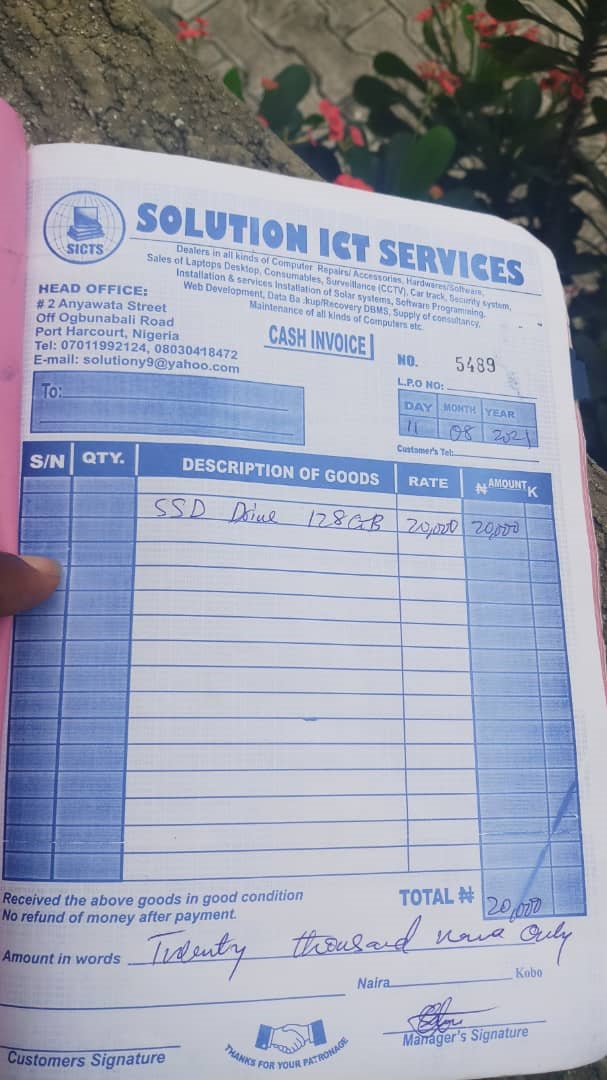 SICTS
SOLUTION ICT SERVICES
Dealers in all kinds of Computer Repairs/ Accessories, Hardwares/Software,
Sales of Laptops Desktop, Consumables, Surveillance (CCTV), Car track, Security system,
Installation & services Installation of Solar systems, Software Programming,
Web Development, Data Ba kup/Recovery DBMS, Supply of consultancy,
Maintenance of all kinds of Computers etc.
HEAD OFFICE:
# 2 Anyawata Street
Off Ogbunabali Road
Port Harcourt, Nigeria
Tel: 07011992124, 08030418472
E-mail: solutiony9@yahoo.com
CASH INVOICE
NO. 5489
L.P.O NO:
To:
DAY MONTH YEAR
11 08 2021
Customer's Tel:
S/N QTY. DESCRIPTION OF GOODS RATE ₦ AMOUNT K
SSD Drive 128GB 20,000 20,000
Received the above goods in good condition
No refund of money after payment.
TOTAL ₦ 20,000
Amount in words Twenty thousand naira only
Naira Kobo
Customers Signature
THANKS FOR YOUR PATRONAGE
Manager's Signature